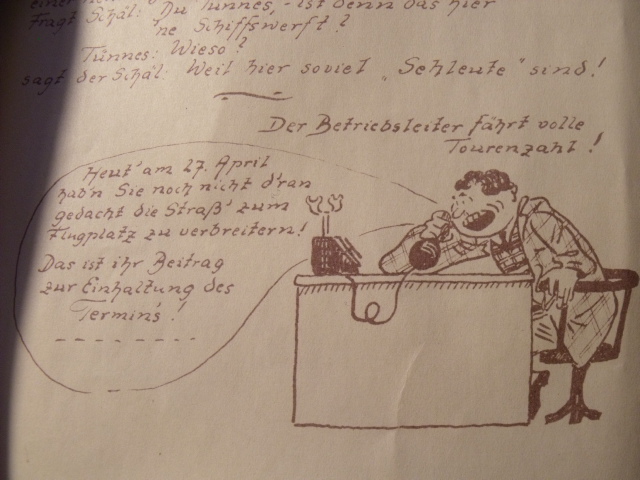 Fragt Schäl: Du Tünnes, - ist denn das hier
'ne Schiffswerft?
Tünnes: Wieso?
sagt der Schäl: Weil hier soviel „Sehleute" sind!
Der Betriebsleiter fährt volle
Tourenzahl!
Heut' am 27. April
hab'n Sie noch nicht d'ran
gedacht die Straß' zum
Flugplatz zu verbreitern!
Das ist ihr Beitrag
zur Einhaltung des
Termins!